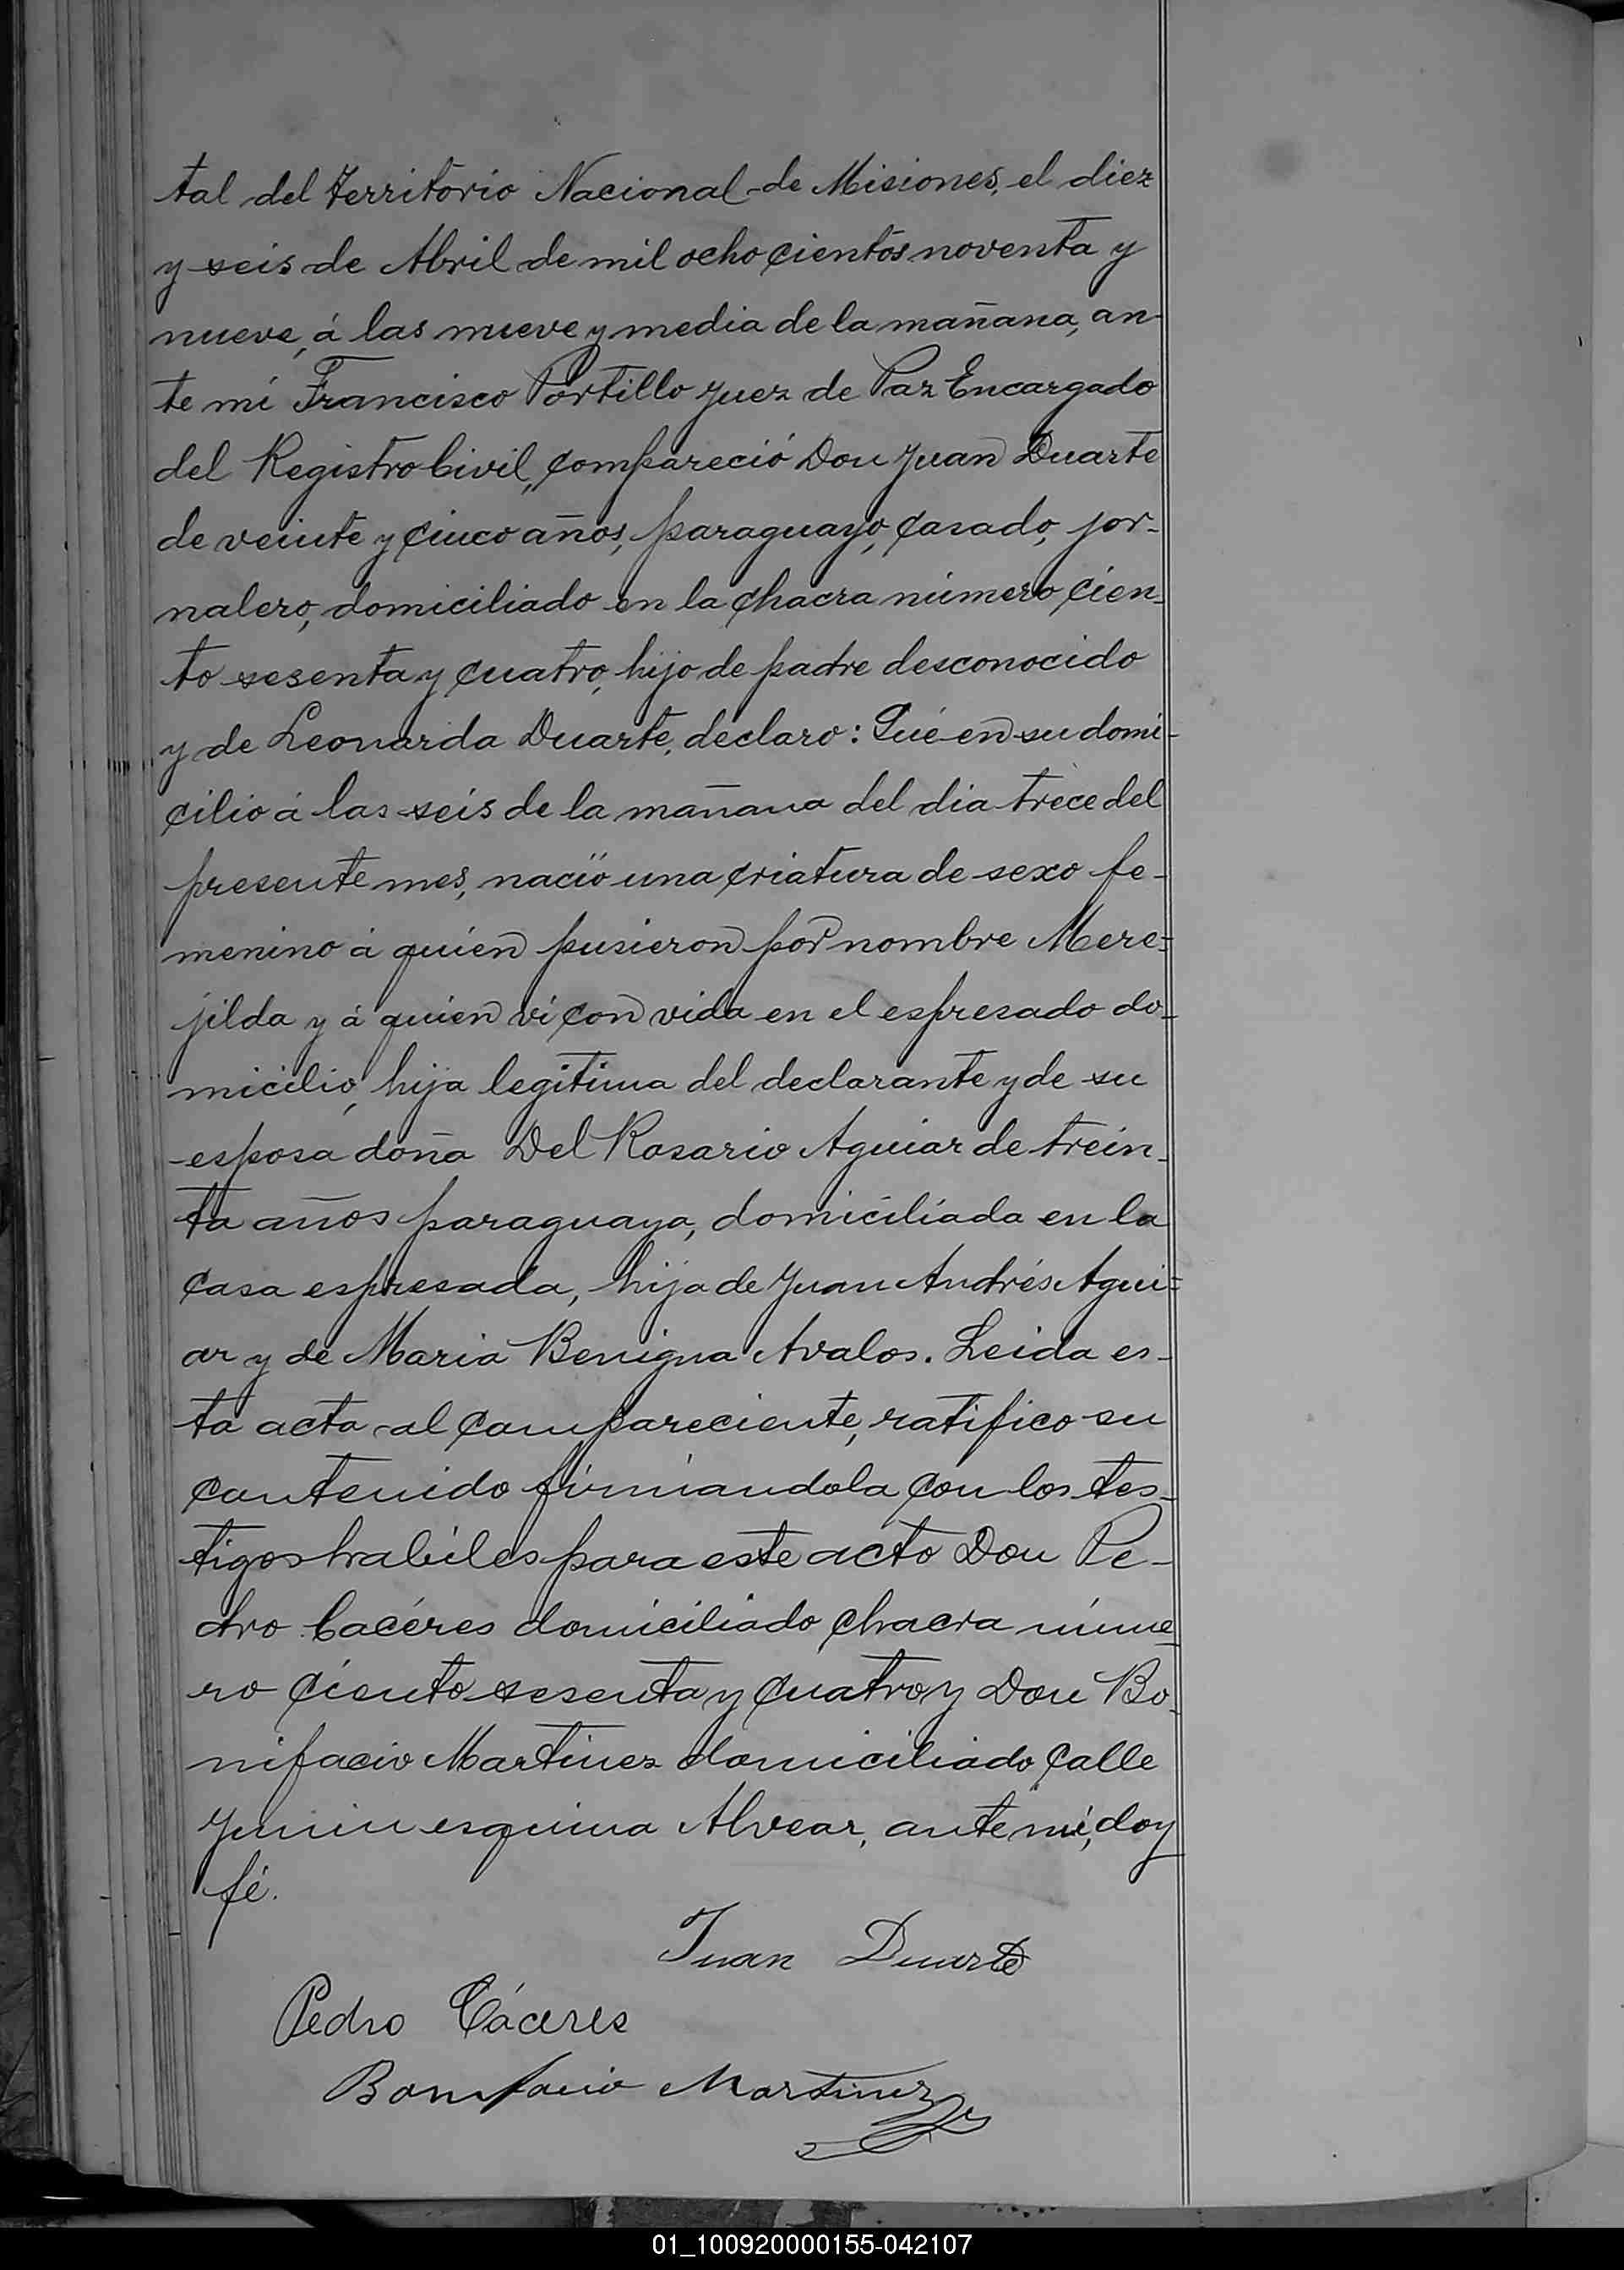 tal del Territorio Nacional de Misiones, el diez
y seis de Abril de mil ocho cientos noventa y
nueve, á las nueve y media de la mañana, an-
te mi Francisco Portillo Juez de Paz Encargado
del Registro Civil, compareció Don Juan Duarte
de veinte y cinco años, paraguayo, casado, jor-
nalero, domiciliado en la chacra número cien-
to sesenta y cuatro, hijo de padre desconocido
y de Leonarda Duarte, declaro: Que en su domi-
cilio á las seis de la mañana del dia trece del
presente mes, nació una criatura de sexo fe-
menino á quien pusieron por nombre Mere=
jilda y á quien vi con vida en el espresado do-
micilio, hija legitima del declarante y de su
esposa doña Del Rosario Aguiar de trein-
ta años paraguaya, domiciliada en la
casa espresada, hija de Juan Andrés Agui=
ar y de Maria Benigna Avalos. Leida es-
ta acta al compareciente, ratifico su
contenido firmandola con los tes-
tigos habiles para este acto Don Pe-
dro Cacéres domiciliado chacra núme-
ro ciento sesenta y cuatro y Don Bo-
nifacio Martinez domiciliado calle
Junin esquina Alvear, ante mi, doy
fé.
Juan Duarte
Pedro Cáceres
Bonifacio Martinez
01_100920000155-042107